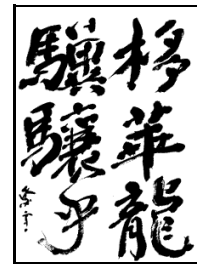 移華龍
驥驤乎